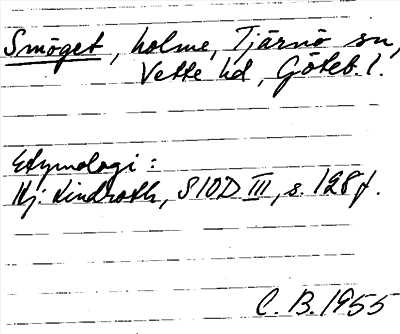 Smöget, holme, Tjärnö sn,
Vette hd, Göteb. l.
Etymologi:
Hj. Lindroth, SIOD III, s. 128 f.
C. B. 1955